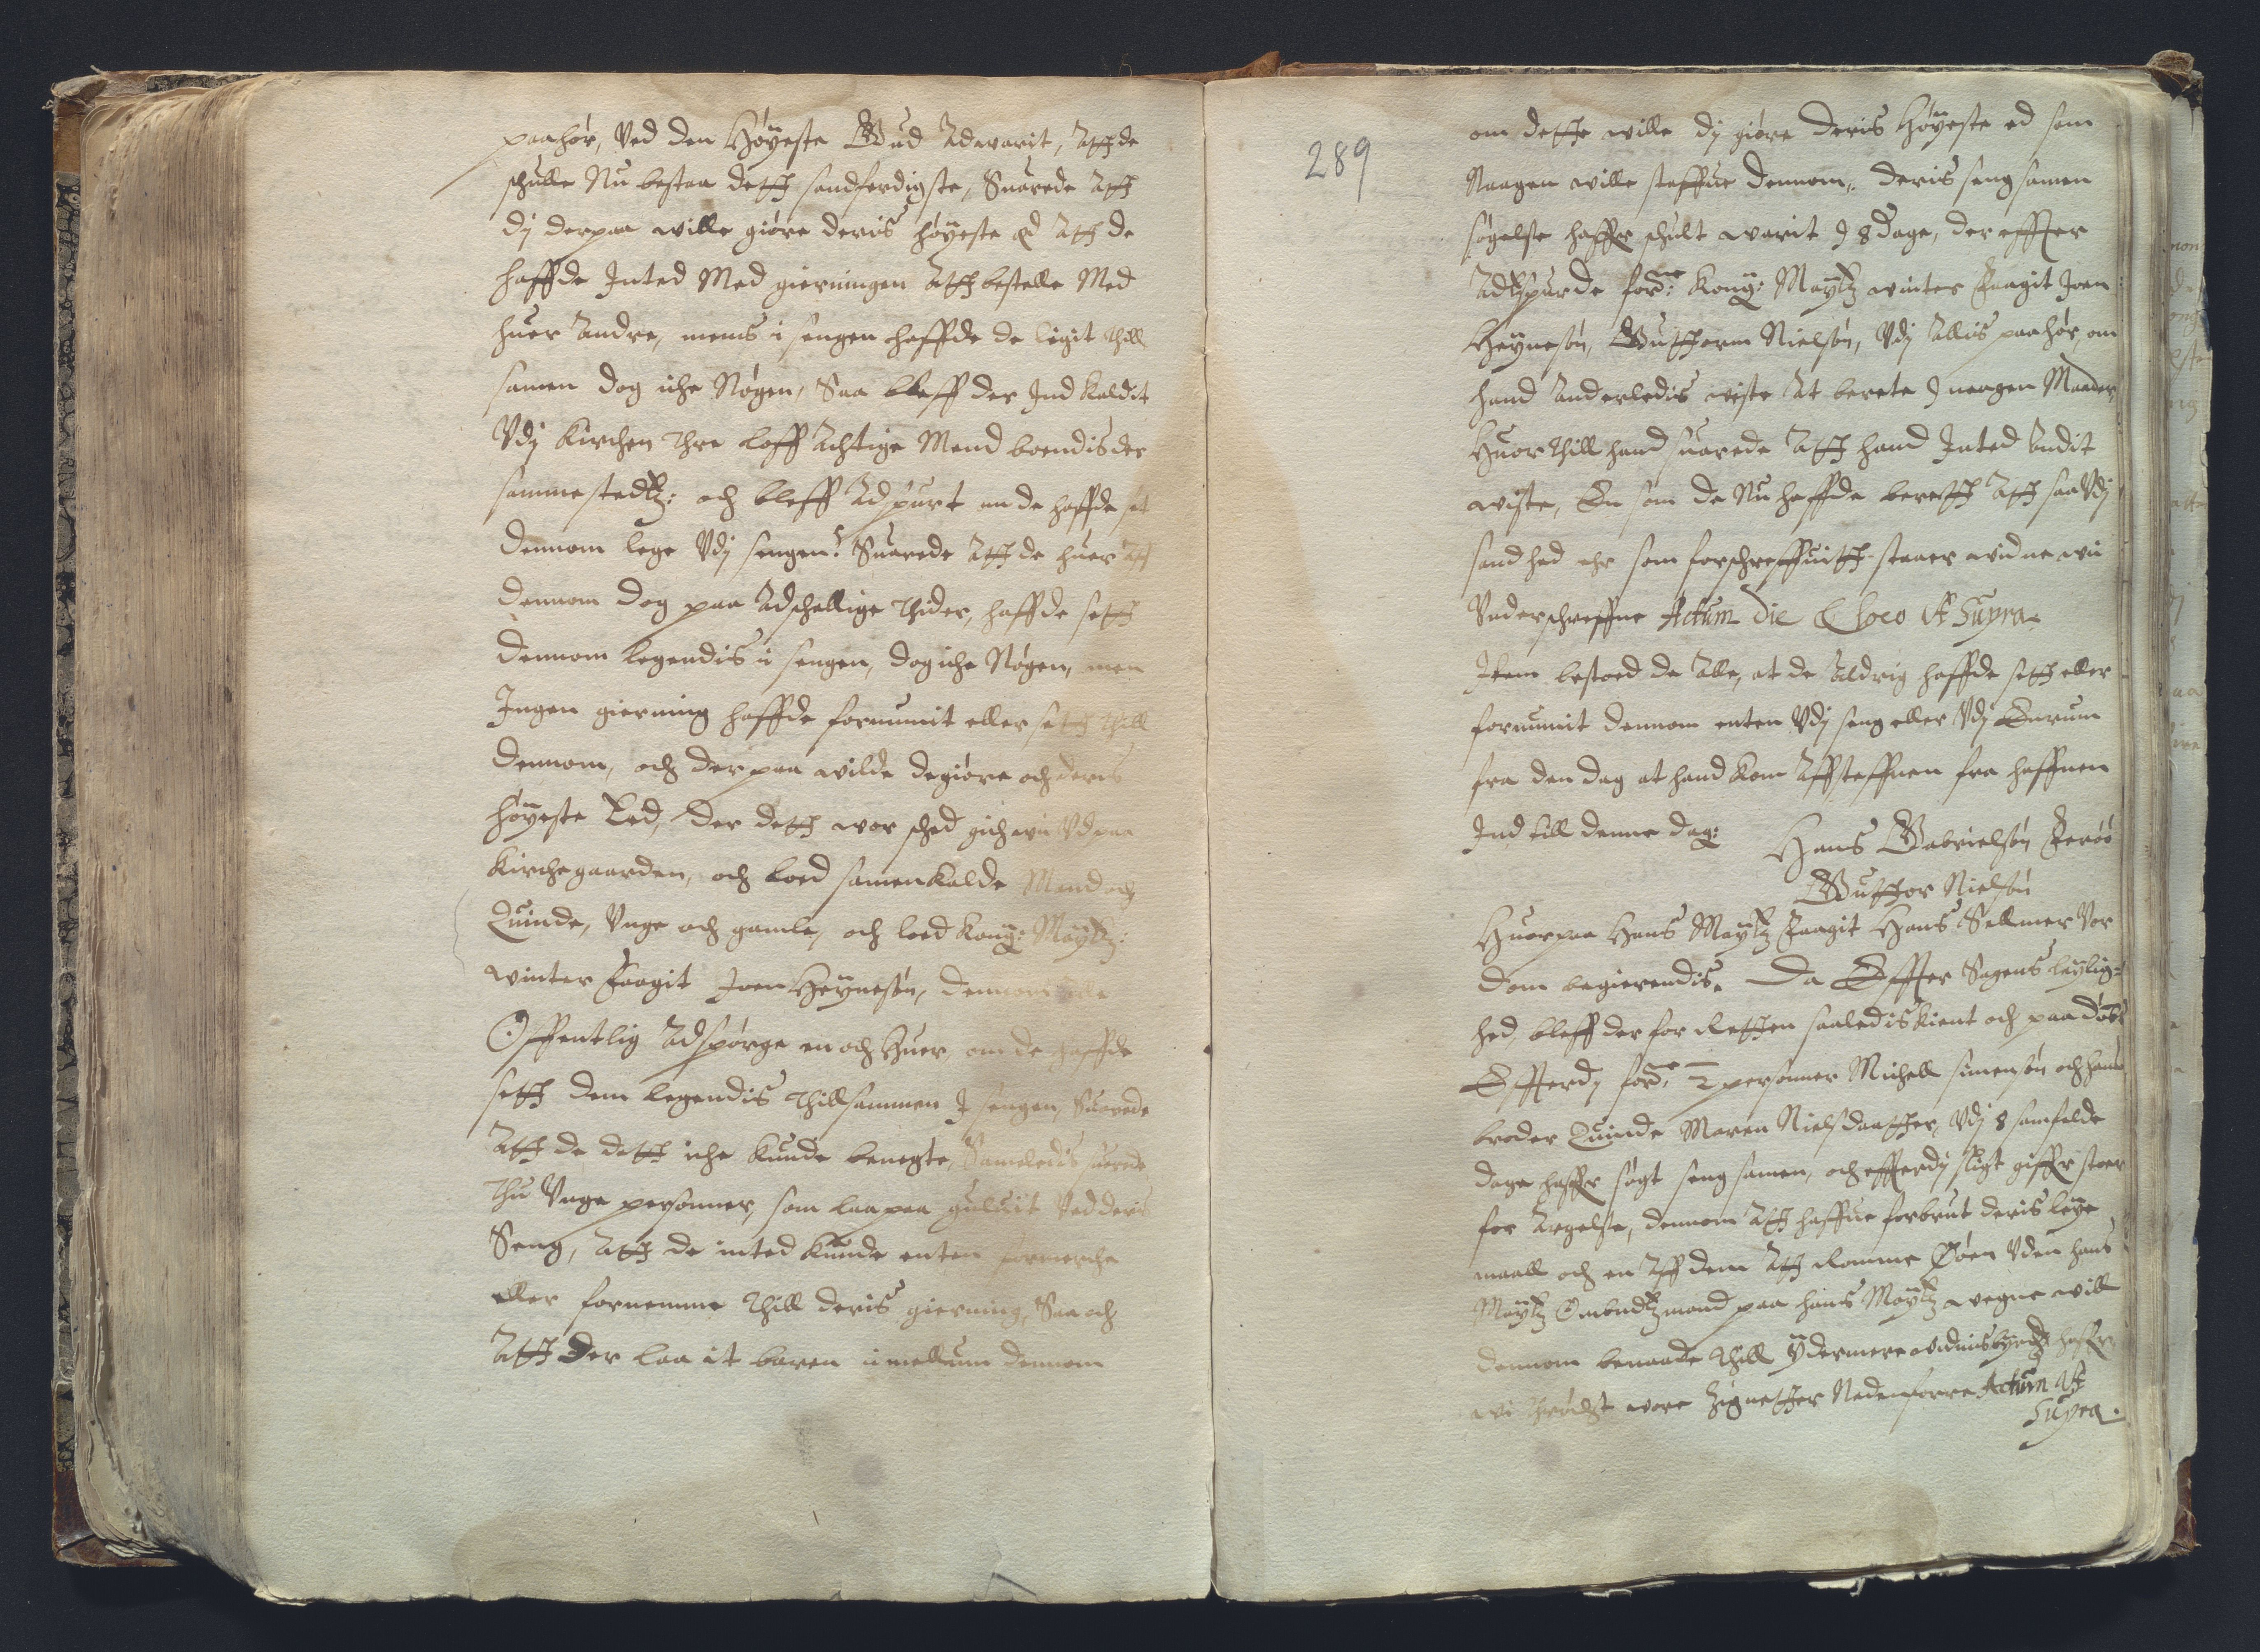 paahør, Ved den Høÿeste Gud Aduarit, Atth de
schulle Nu bestaa detth sandferdigste, Suarede Atth
dj derpaa wille giøre deris høÿeste Ed Atth de
haffde Inted Med gierningen Atth bestelle Med
huer Andre, mens i sengen haffde de ligit thill
samen dog iche Nøgen, Saa bleff der Ind kaldit
Vdj Kirchen thre loff Achtige Mend boendis der
samme stedtz: och bleff Adspurt om de haffde set
dennom lege Vdj sengen? Suarede Atth de huer Aff
dennom dog paa Adschellige thider, haffde setth
dennom legendis i sengen, dog iche Nøgen, men
Ingen gierning haffde fornumit eller setth thill
dennom, och derpaa wilde de giøre och deris
høÿeste Eed, der detth wor sched gich wii Vd paa
Kirchegaarden, och loed samenkalde Mand och
Quinde, Vnge och gamle, och loed Kong: Maÿtz:
winter Faagit Joen Heÿnesøn, dennom alle
Offentlig Adspørge en och Huer, om de haffde
setth dem legendis thillsammen I sengen, Suarede
Atth de detth iche kunde benegte, Sameledis suarede
thu Vnge personner, som laa paa guluit Ved deris
Seng, Atth de inted kunde enten formerche
eller fornemme thill deris gierning, Saa och
Atth der laa it baren imellum dennom
289
om detthe wille dj giøre deris Høÿeste ed som
Naagen wille staffue dennom, deris seng samen
søgelse haffr schult warit I 8 dage, der effter
Adtspurde ford:ne Kong: Maÿtz winter Faagit Joen
Heÿnesøn, Gutthorm Nielsøn, Vdj Allis paahør, om
hand Anderledis wiste At berete I naagen Maader,
Huor thill hand suarede Atth hand Inted Andit
wiste, En som de Nu haffde beretth Atth saa Vdj
sandhed ehr som forschreffuitth staaer widne wii
Vnderschreffne Actum Die & loco Vt Supra.
Item bestoed de Alle, at de Aldrig haffde setth eller
fornumit dennom enten Vdj seng eller Vdj Enrum
fra den dag at hand kom Aff steffnen fra haffnen
Ind till denne dag:
Hans Gabrielsøn Færöö
Gutthor Nielsøn
Huorpaa Hans Maÿtz Faagit Hans Sellmer Vor
dom begierendis. Da Effter Sagens leÿlig-
hed, bleff der for Retthen saaledis kient och paa dømt
Efterdj ford:e 2 personner Michell Simensøn och hans
broder Quinde Maren Nielsdaatther, Vdj 8 samfelde
dage haffr søgt seng samen, och efterdj sligt giffr stoer
for Argelse, dennom Atth haffue forbrut deris leÿe
maall och en Aff dem Atth Romme Øøen Vden hans
Maÿtz Ombudtzmand paa hans Maÿtz wegne will
dennom benaade thill ÿdermere widnisbyrdt haffr
wi thrÿcht wore Zignetther Nedenforre Actum Vt
Supra.